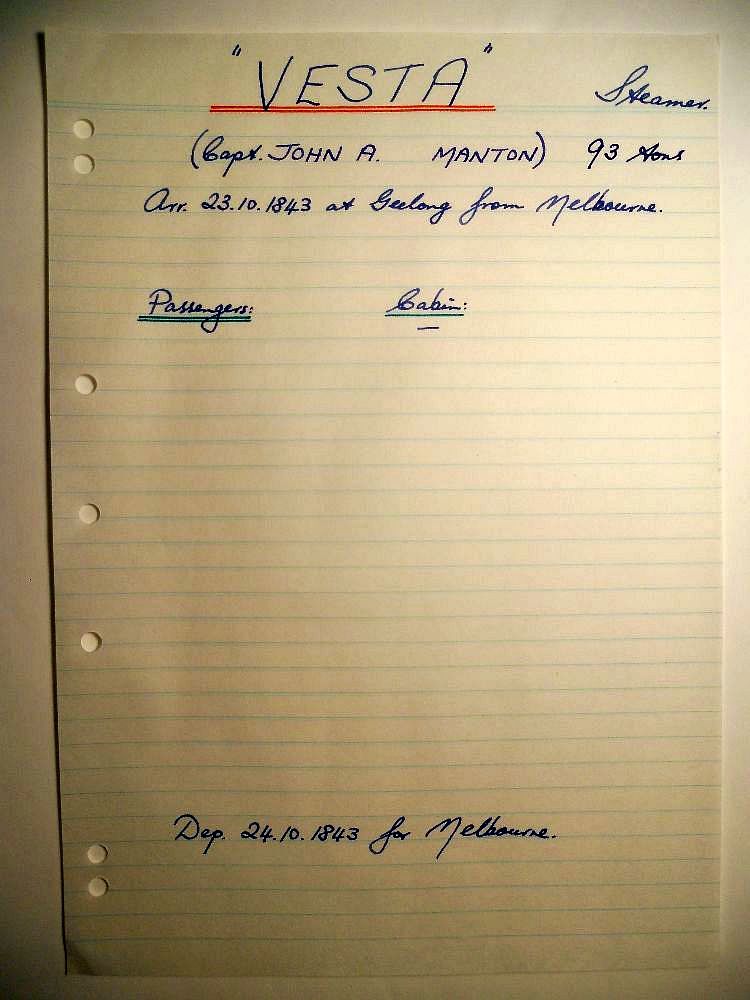 "VESTA" Steamer.
(Capt. JOHN A. MANTON) 93 tons
Arr. 23.10.1843 at Geelong from Melbourne.
Passengers: Cabin:
—
Dep. 24.10.1843 for Melbourne.